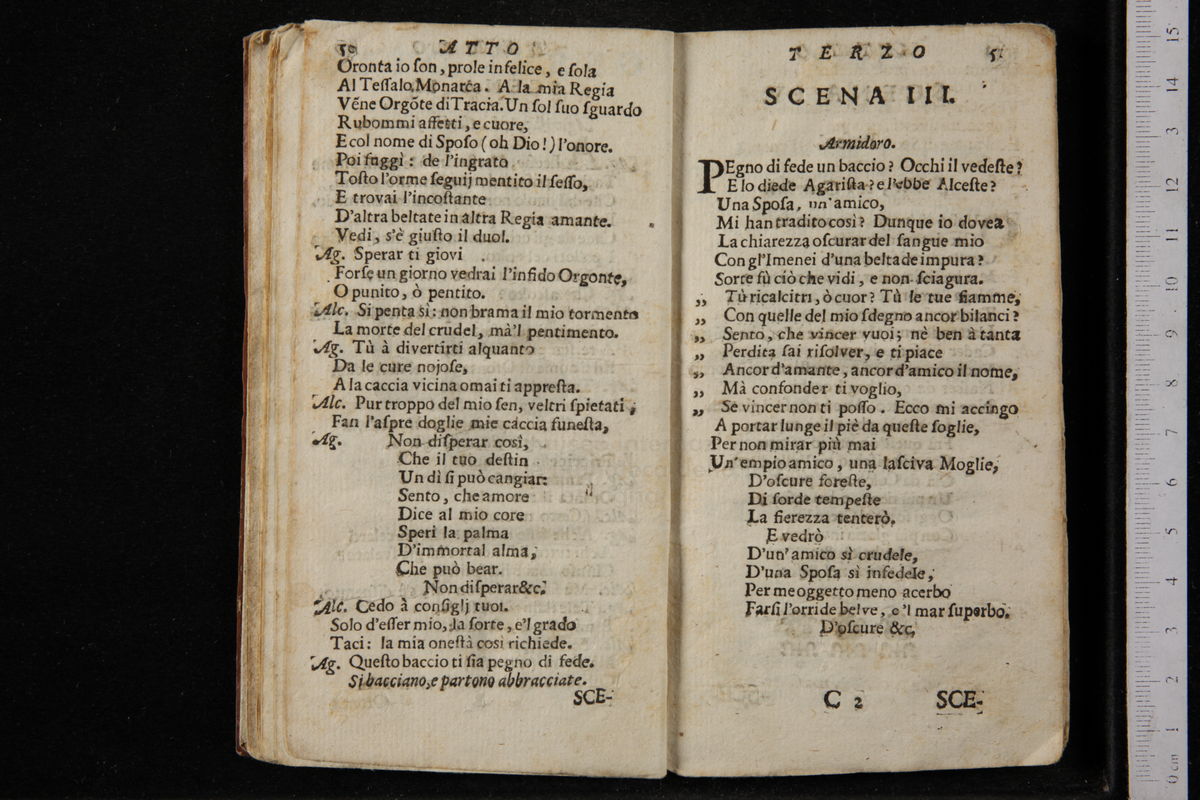 50 ATTO
Oronta io ſon, prole infelice, e ſola
Al Teſſalo Monarca. A la mia Regia
Vẽne Orgõte di Tracia. Un ſol ſuo ſguardo
Rubommi affetti, e cuore,
E col nome di Spoſo (oh Dio!) l'onore.
Poi fuggì: de l'ingrato
Toſto l'orme ſeguij mentito il ſeſſo,
E trovai l'incoſtante
D'altra beltate in altra Regia amante.
Vedi, s'è giuſto il duol.
Ag. Sperar ti giovi
Forſe un giorno vedrai l'infido Orgonte,
O punito, ò pentito.
Alc. Si penta sì: non brama il mio tormento
La morte del crudel, mà'l pentimento.
Ag. Tù à divertirti alquanto
Da le cure nojoſe,
A la caccia vicina omai ti appreſta.
Alc. Pur troppo del mio ſen, veltri ſpietati,
Fan l'aſpre doglie mie caccia funeſta,
Ag. Non diſperar così,
Che il tuo deſtin
Un dì ſi può cangiar:
Sento, che amore
Dice al mio core
Speri la palma
D'immortal alma,
Che può bear.
Non diſperar &c.
Alc. Cedo à conſiglj tuoi.
Solo d'eſſer mio, la ſorte, e'l grado
Taci: la mia oneſtà così richiede.
Ag. Queſto baccio ti ſia pegno di fede.
Si bacciano, e partono abbracciate.
SCE-
TERZO 51
SCENA III.
Armidoro.
PEgno di fede un baccio? Occhi il vedeſte?
E lo diede Agariſta? e l'ebbe Alceſte?
Una Spoſa, un'amico,
Mi han tradito così? Dunque io dovea
La chiarezza oſcurar del ſangue mio
Con gl'Imenei d'una beltade impura?
Sorte fù ciò che vidi, e non ſciagura.
„ Tù ricalcitri, ò cuor? Tù le tue fiamme,
„ Con quelle del mio ſdegno ancor bilanci?
„ Sento, che vincer vuoi; nè ben à tanta
„ Perdita ſai riſolver, e ti piace
„ Ancor d'amante, ancor d'amico il nome,
„ Mà confonder ti voglio,
„ Se vincer non ti poſſo. Ecco mi accingo
A portar lunge il piè da queſte ſoglie,
Per non mirar più mai
Un'empio amico, una laſciva Moglie,
D'oſcure foreſte,
Di ſorde tempeſte
La fierezza tenterò.
E vedrò
D'un'amico sì crudele,
D'una Spoſa sì infedele,
Per me oggetto meno acerbo
Farſi l'orride belve, e'l mar ſuperbo.
D'oſcure &c.
C 2 SCE-
0 cm 1 2 3 4 5 6 7 8 9 10 11 12 13 14 15